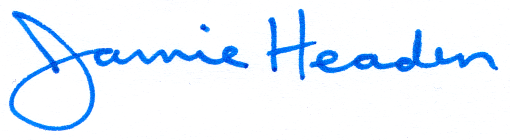 Jamie Headen